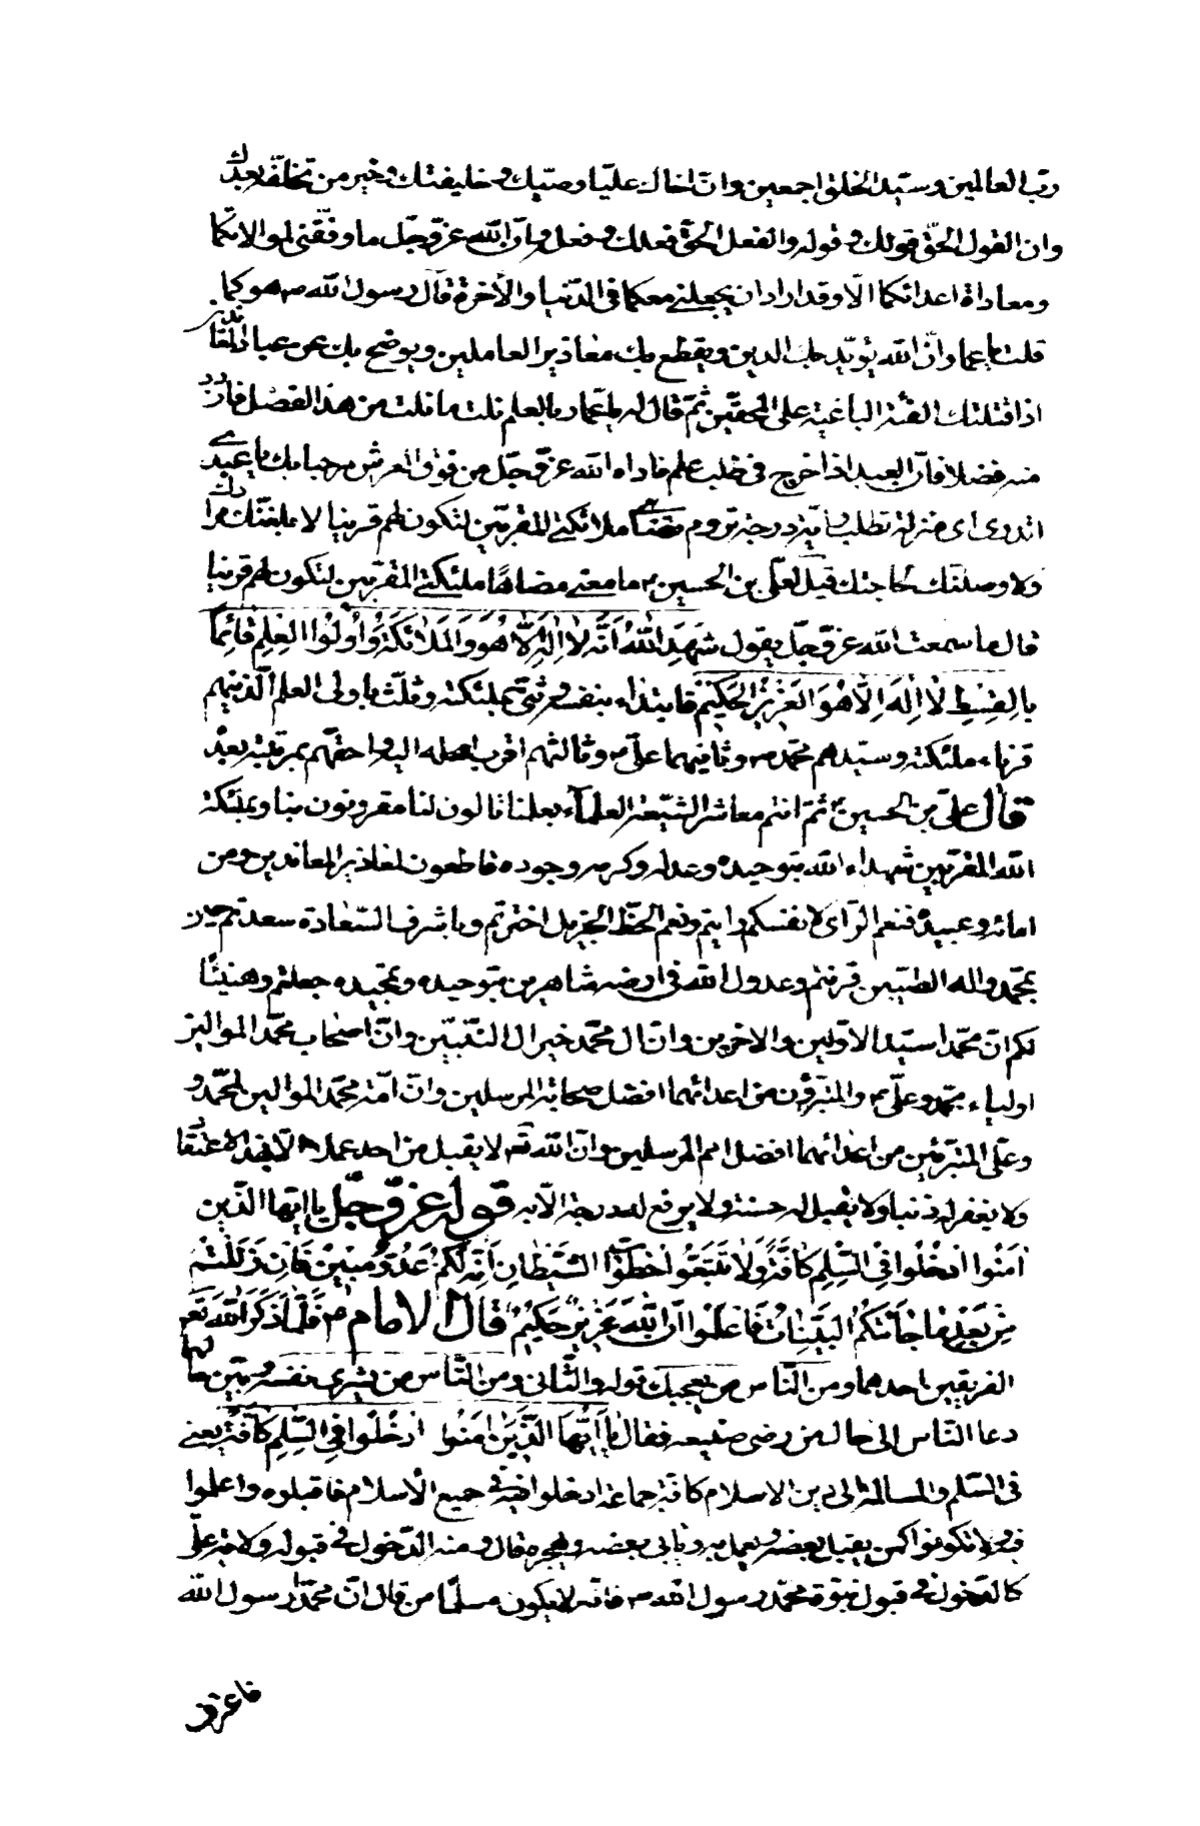 ربّ العالمين وسيّد الخلق اجمعين وانّ اخاك عليّا وصيّك وخليفتك وخير من تخلّفه بعدك
وان القول الحقّ قولك وقوله والفعل الحقّ فعلك وفعله وانّ الله عزّ وجلّ ما وفّقنى لموالاتكما
ومعاداة اعدائكما الّا وقد اراد ان يجعلنى معكما فى الدّنيا والاخرة قال رسول الله ص هو كما
قلت يا عمار انّ الله يؤيّد بك الدين ويقطع بك معاذير الغافلين ويوضح بك عن عناد المعاندين
اذا قتلتك الفئة الباغية على المحقّين ثمّ قال له يا عمّار بالعلم نلت ما نلت من هذا الفضل فازدد
منه فضلا فانّ العبد اذا خرج فى طلب علم ناداه الله عزّ وجلّ من فوق العرش مرحبا بك يا عبدى
اتدرى اى منزلة تطلب وايّة درجة تروم مضاهى ملائكتى المقرّبين لتكون لهم قرينا لابلغنّك مرادك
ولاوصلنّك بحاجتك قيل لعلّى بن الحسين ع ما معنى مضاهاة ملئكتى المقرّبين لتكون لهم قرينا
قال اما سمعت الله عزّ وجلّ يقول شَهِدَ اللهُ اَنَّهُ لا اِلهَ اِلَّا هُوَ وَالمَلائكَةُ وَاُولُوا العِلمِ قائِمًا
بِالقِسْطِ لا اِلهَ اِلَّا هُوَ العَزيزُ الحَكيمُ فابتداء بنفسه وثنّى بملئكته وثلّث باولى العلم الّذينهم
قرناء ملئكته وسيّدهم محمّد ص وثانيهما علىّ ع وثالثهم اقرب اهله اليه واحقّهم بمرتبته بعده
قال علىّ بن الحسين ع ثمّ انتم معاشر الشيّعة العلماء بعلمنا تالون لنا مقرونون بنا وبملئكة
الله المقرّبين شهداء الله بتوحيده وعدله وكرمه وجوده قاطعون لمعاذير المعاندين من
امائه وعبيده فنعم الرّاى لانفسكم رايتم ونعم الحظّ الجزيل اخترتم وباشرف السّعادة سعدتم حين
بمحمّد واله الطيّبين قرنتم وعدول الله فى ارضه شاهرين بتوحيده وتمجيده جعلتم وهنيئًا
لكم انّ محمّدا سيّد الاوّلين والاخرين وانّ ال محمّد خير ال النّبيّين وانّ اصحاب محمّد الموالين
اولياء محمّد وعلىّ ع والمتبرّؤن من اعدائهما افضل صحابة المرسلين وانّ امّة محمّد الموالين لمحمّد و
وعلّى المتبرّئين من اعدائهما افضل امم المرسلين وانّ الله تع لا يقبل من احد عملا الّا بهذا الاعتقاد
ولا يغفر له ذنبا ولا يقبل له حسنة ولا يرفع له درجة الّا به قوله عزّ وجلّ يا ايّها الّذين
امَنُوا ادْخُلُوا فِى السِّلمِ كافَّةً وَلا تَتَّبِعُوا خُطُواتِ الشَّيْطانِ اِنَّهُ لَكُم عَدُوٌّ مُبينٌ فَاِن زَلَلْتُم
مِن بَعْدِ ما جائَتكُمُ البَيِّناتُ فَاعلَمُوا انَّ اللهَ عَزيزٌ حَكيمٌ قال الامام ع فلمّا ذكر الله تع
الفريقين احدهما ومن النّاس من يعجبك قوله والثّانى ومن النّاس من يشرى نفسه وبيّن حالهما
دعا النّاس الى حال من رضى صنيعه فقال يا اَيُّهَا الَّذينَ امَنُوا ادْخُلُوا فِى السِّلمِ كافَّةً يعنى
فى السّلم والمسالمة الى دين الاسلام كافّة جماعة ادخلوا فيه فى جميع الاسلام فاقبلوه واعملوا
فيه ولا تكونوا كمن يقبل بعضه ويعمل به ويابى بعضه ويهجره قال ومنه الدّخول فى قبول ولاية علّى
كالدخول فى قبول نبوّة محمّد رسول الله ص فانّه لا يكون مسلمًا من قال انّ محمّدا رسول الله
فاعترف